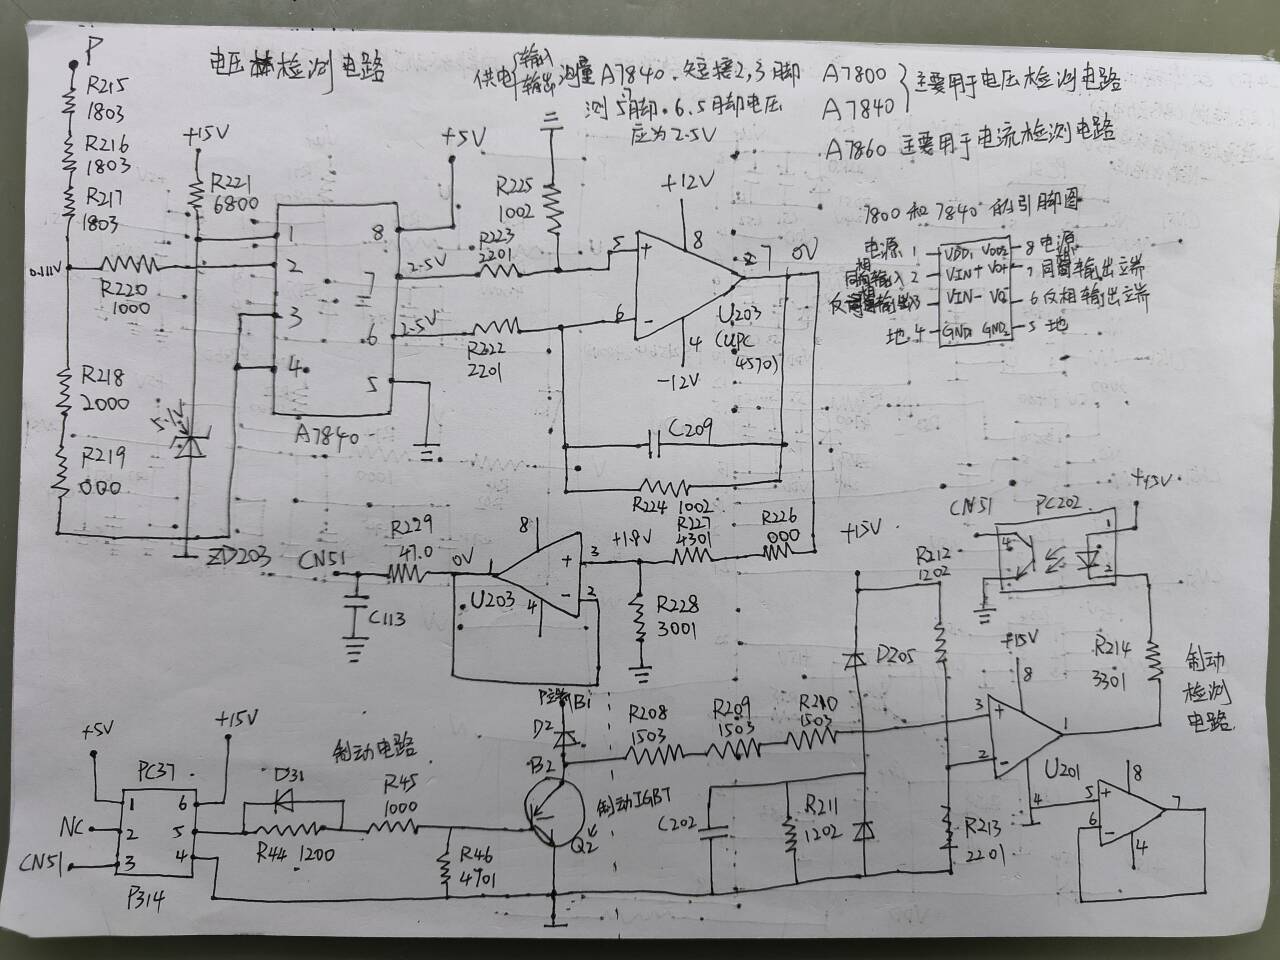 电压检测电路
供电{输入 输出 测量A7840.短接2,3脚
测5脚.6.5脚电压
应为2.5V
A7800
A7840 } 主要用于电压检测电路
A7860 主要用于电流检测电路
P
R215
1803
R216
1803
R217
1803
0.11V
R220
1000
R218
2000
R219
000
+15V
R221
6800
5.1V
ZD203
1
2
3
4
8
7
6
5
A7840
+5V
2.5V
2.5V
R225
1002
R223
2201
R222
2201
+12V
5
+
6
-
8
7
0V
4
-12V
U203
(UPC
4570)
C209
R224 1002
7800和7840的引脚图
电源 1 VDD1 VDD2 8 电源
同相输入 2 VIN+ VO+ 7 同相输出端
3 VIN- VO- 6 反相输出端
地 4 GND1 GND2 5 地
R226
000
R227
4301
+1.9V
R228
3001
3
+
2
-
8
1
4
U203
0V
R229
47.0
CN51
C113
CN51
PC202
+15V
4
1
2
+15V
R212
1202
D205
R214
3301
制动
检测
电路
+15V
8
3
+
2
-
1
4
U201
5
+
6
-
8
7
4
R213
2201
R211
1202
C202
R208
1503
R209
1503
R210
1503
B1
D2
B2
制动IGBT
Q2
制动电路
+5V
+15V
PC37
1
2
3
6
5
4
P314
NC
CN51
D31
R44 1200
R45
1000
R46
4701